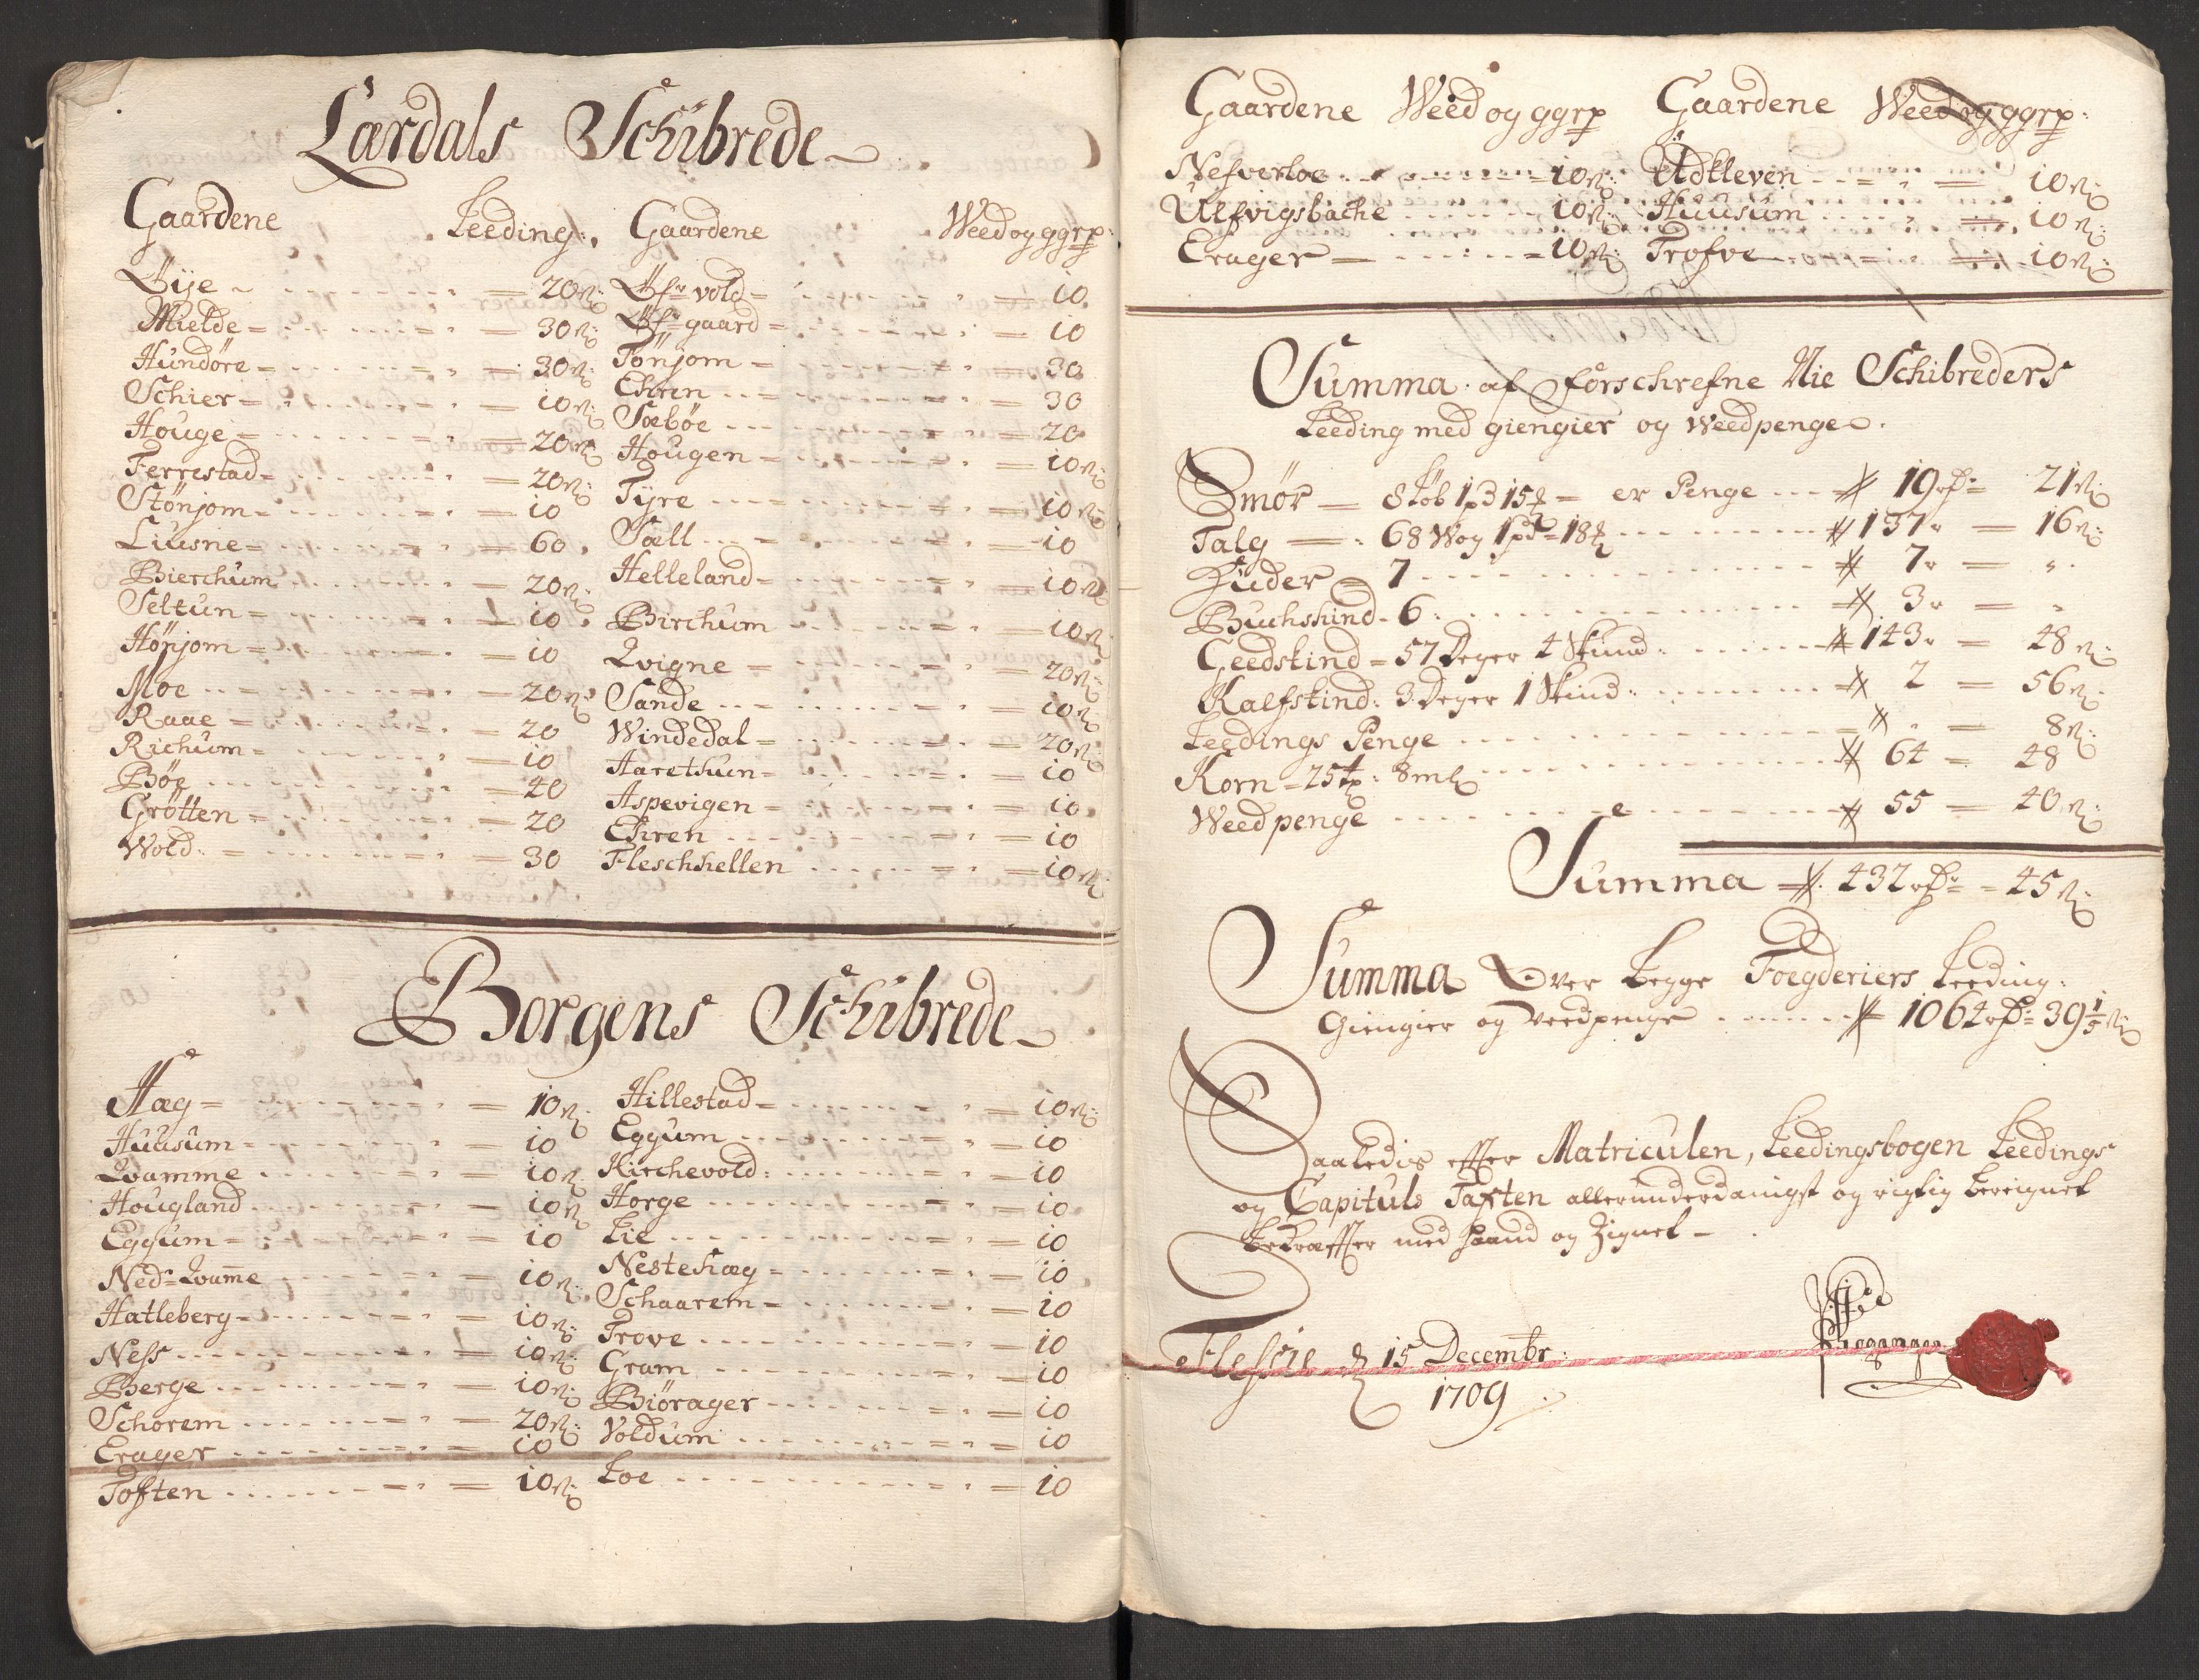 Lærdals Schibrede
Gaardene Leeding: Gaardene Weed og ggrp:
Øije 20 ß: Øfr vold 10
Mielde 30 ß: Øfr gaard 10
Hundöre 30 ß: Tönjom 30
Schier 10 ß: Ehren 30
Houge 20 ß Sæböe 20
Ferrestad 20 ß: Hougen 10 ß:
Stönjom 10 Tyre 10 ß:
Liusne 60 Sæll 10
Bierchum 20 ß: Helleland 10 ß
Seltun 10 Birchum 10 ß:
Hönjom 10 Qvigne 20 ß:
Moe 20 ß: Sande 10 ß
Raae 20 Windedal 20 ß:
Richum 10 Aarethun 10
Böe 40 Aspevigen 10
Grötten 20 Ehren 10
Wold 30 Fleschhellen 10 ß:
Borgens Schibrede
Hæg 10 ß: Hillestad 10 ß:
Huusum 10 Eggum 10
Qvamme 10 ß: Kirchevold 10
Hougland 10 ß Horge 10
Eggum 10 Lie 10
Ned: Qvam̄e 10 ß: Nestehæg 10
Hatleberg 10 ß: Schaarem 10
Ness 10 ß: Trove 10
Berge 10 ß: Gram 10
Schorem 20 ß: Biörager 10
Erager 10 Voldum 10
Toften 10 ß: Loe 10
Gaardene Weed og ggrp Gaardene Weed og ggrp:
Nefverloe 10 ß: Udkleven 10 ß:
Ulfvigsbache 10 ß: Huusum 10 ß:
Erager 10 ß: Trofve 10 ß:
Summa af forschrefne Nie Schibreders
Leeding med giengier og Weedpenge.
Smör 8 Löb 1 p 3 15 er Penge 19 rd 21 ß:
Talg 68 Wog 1 pd 18 137 16 ß:
Huder 7 7
Buchskind 6: 3
Geedskind 57 Deger 4 Skind: 143 48 ß:
Kalfskind: 3 Deger 1 Skind: 2 56 ß:
Leedings Penge 8 ß:
Korn 25 8 64 48
Weedpenge 55 40 ß:
Summa 432 rd 45 ß:
Summa Over begge Foegderiers Leeding:
Giengier og Veedpenge 1062 rd 39 1/5 ß:
Saaledis efter Matriculen, Leedingsbogen Leedings
og Capituls Taxten allerunderdanigst og rigtig bereignet
bekræfter med Haand og Zignet
d 15 Decembr:
1709